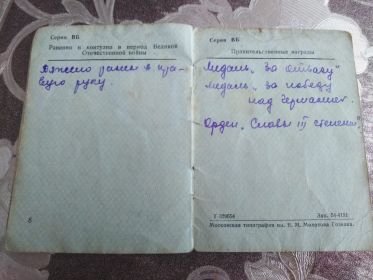 Серия ВБ
Ранения и контузии в период Великой
Отечественной войны
Тяжело ранен в пра-
вую руку
6
Серия ВБ
Правительственные награды
Медаль „За отвагу"
Медаль „За победу
над Германией.
Орден „Славы III степени"
Г
Зак.
Московская типография им. В. М. Молотова Гознака.